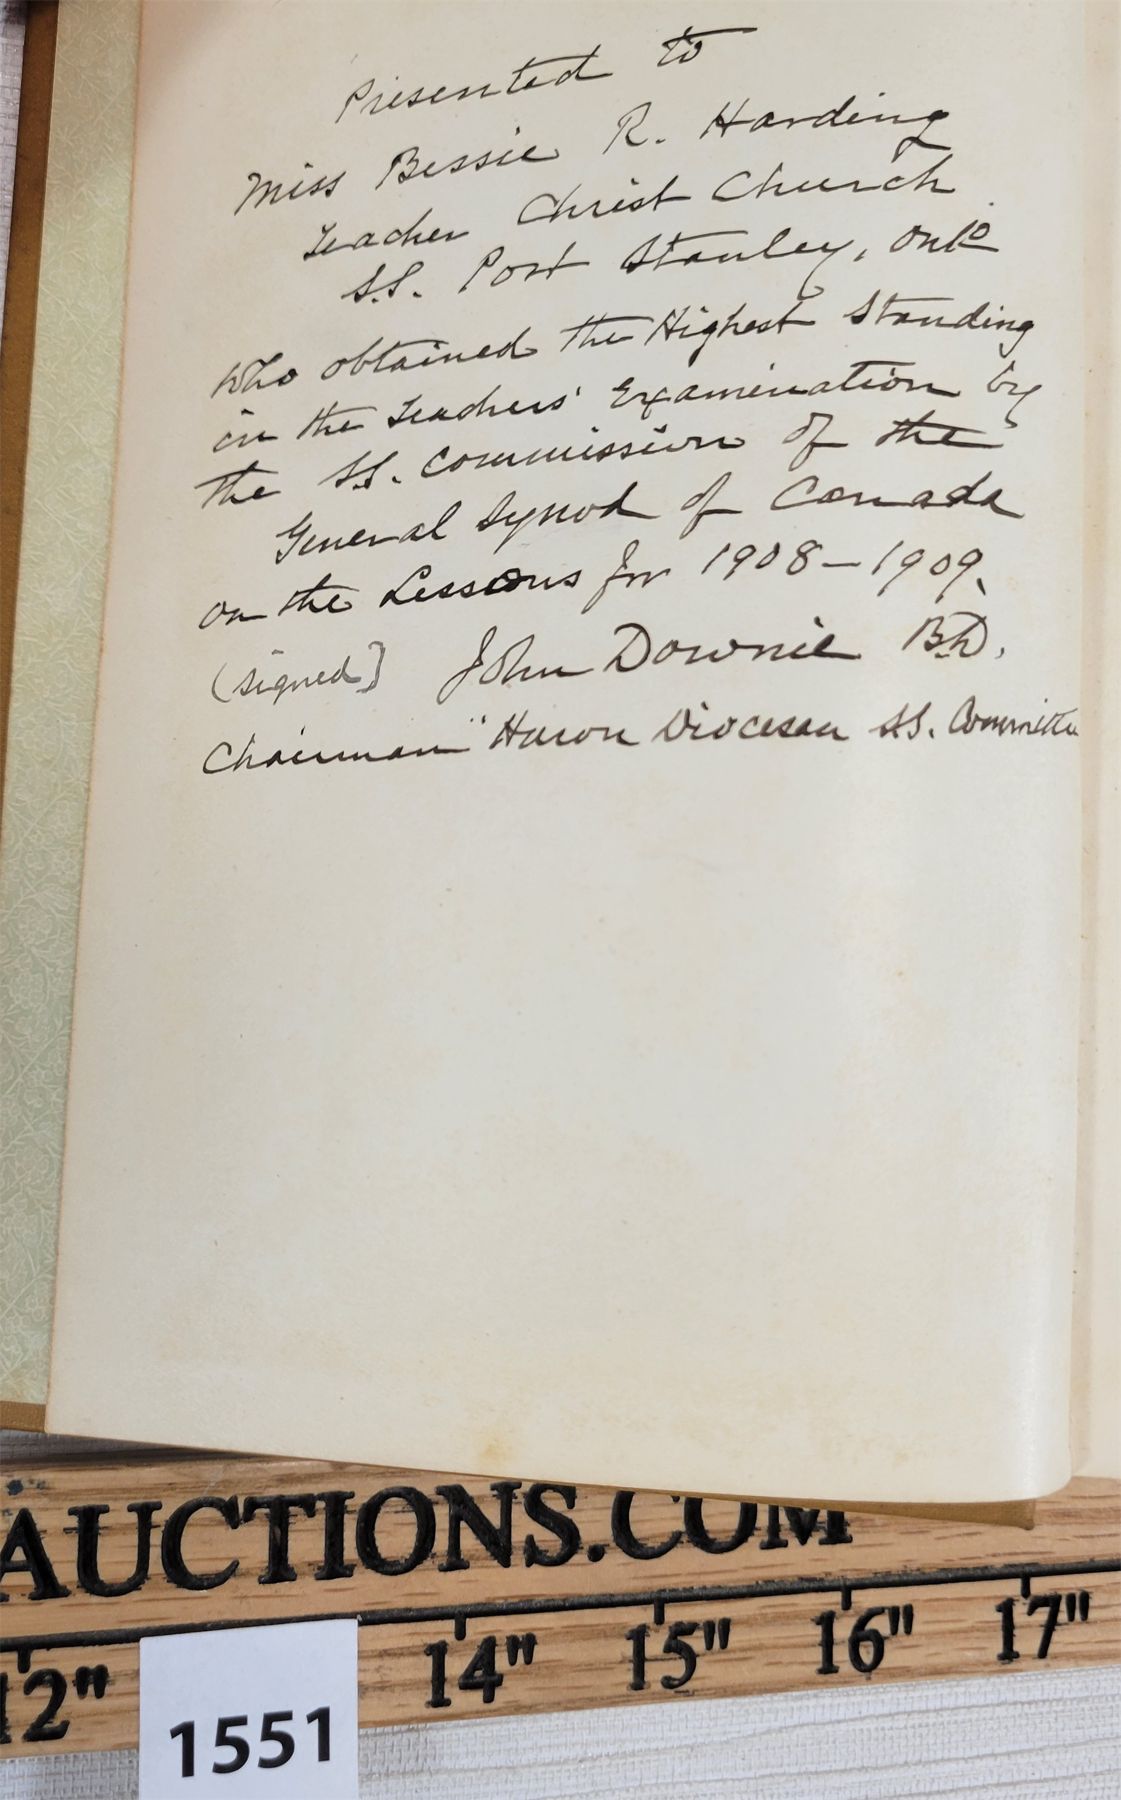 Presented to
Miss Bessie R. Harding
Teacher Christ Church
S.S. Port Stanley, Onto
who obtained the Highest Standing
in the Teachers' Examination by
the S.S. Commission of the
General Synod of Canada
on the Lessons for 1908-1909.
(signed] John Downie B.D.
Chairman " Huron Diocesan S.S. Committee
AUCTIONS.COM
12" 14" 15" 16" 17"
1551